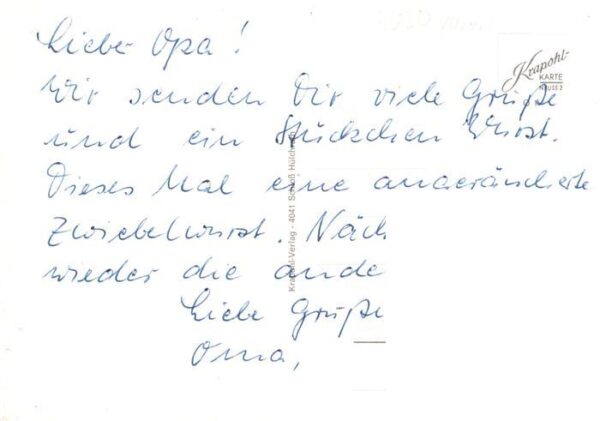 Liebe Opa!
Wir senden Dir viele Grüße
und ein Stückchen Wurst.
Dieses Mal eine angeräucherte
Zwiebelwurst. Näch
wieder die ande
Liebe Grüße
Oma,
Krapohl-
KARTE
NEUSS 2
Krapohl-Verlag - 4041 Schloß Hülchrath